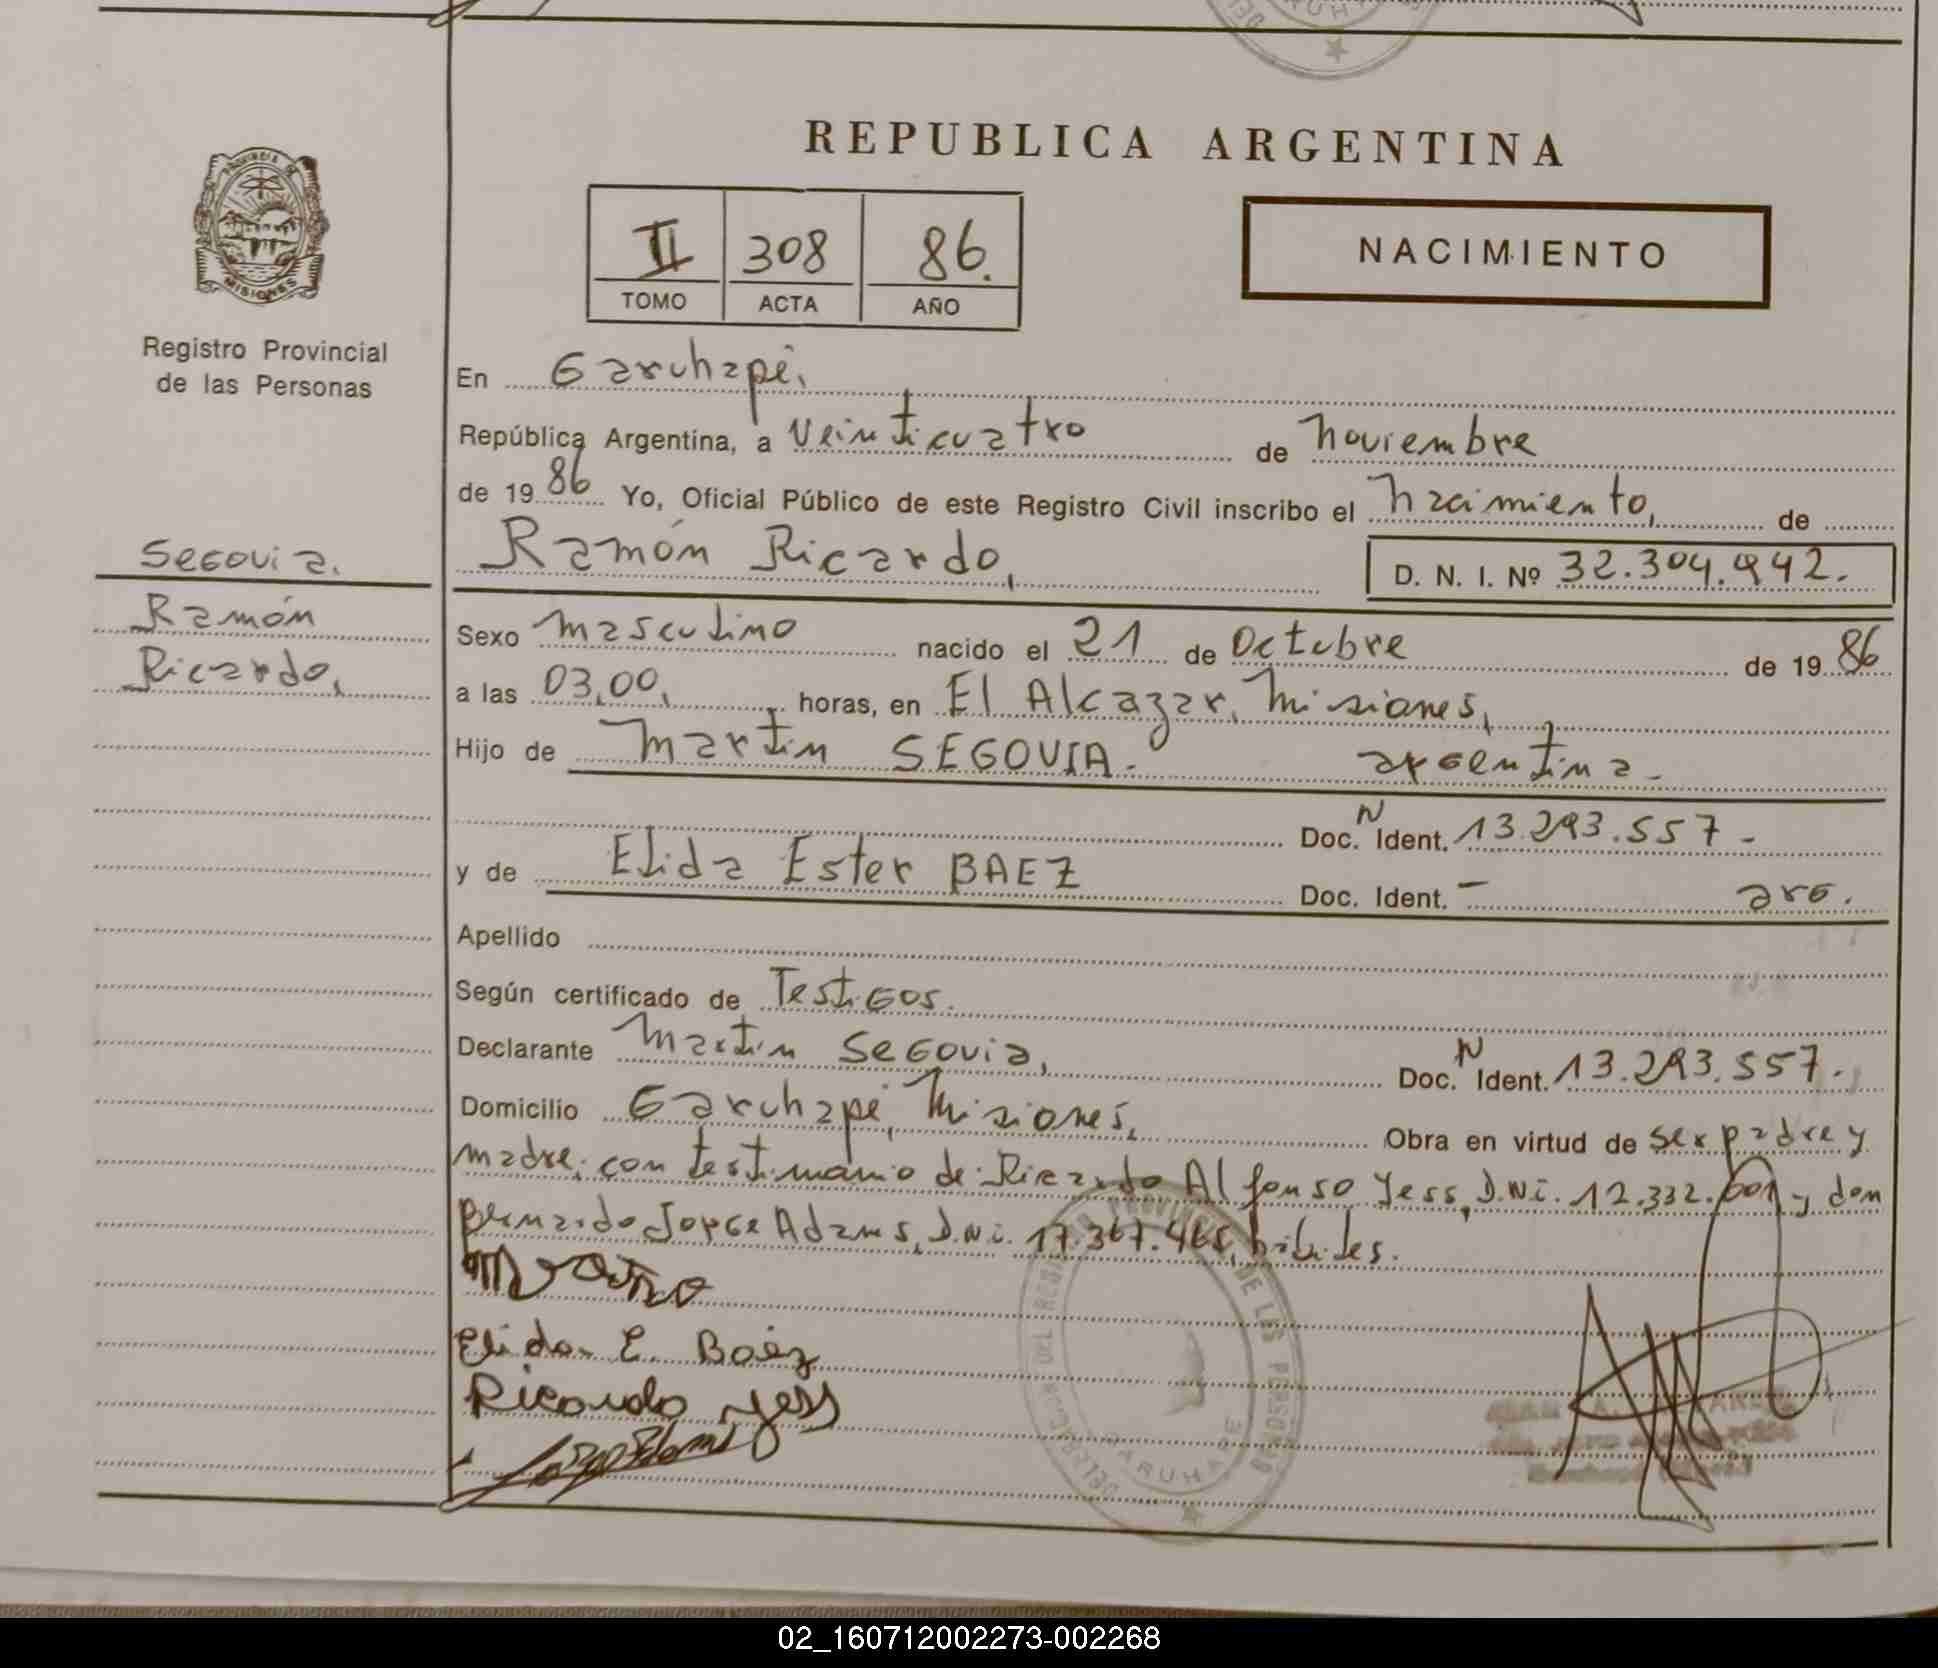 REPUBLICA ARGENTINA
PROVINCIA DE
MISIONES
Registro Provincial
de las Personas
II 308 86.
TOMO ACTA AÑO
NACIMIENTO
En Garuhapé,
República Argentina, a Veinticuatro de noviembre
de 19 86 Yo, Oficial Público de este Registro Civil inscribo el nacimiento, de
Segovia.
Ramón Ricardo, D. N. I. Nº 32.304.942.
Ramón
Ricardo,
Sexo masculino nacido el 21 de Octubre de 19 86
a las 03,00, horas, en El Alcazar, Misiones,
Hijo de Martin SEGOVIA. argentina.
Doc. N Ident. 13.293.557-
y de Elida Ester BAEZ Doc. Ident. - arg.
Apellido
Según certificado de Testigos.
Declarante Martin Segovia, Doc. N Ident. 13.293.557.
Domicilio Garuhapé, Misiones, Obra en virtud de ser padre y
madre; con testimonio de Ricardo Alfonso Yess, D.N.i. 12.332.001 y don
Bernardo Jorge Adams, D.N.i. 17.367.465, hábiles.
Elida E. Baéz
Ricardo Yess
DELEGACION DEL REGISTRO PROVINCIAL DE LAS PERSONAS
GARUHAPE
02_160712002273-002268